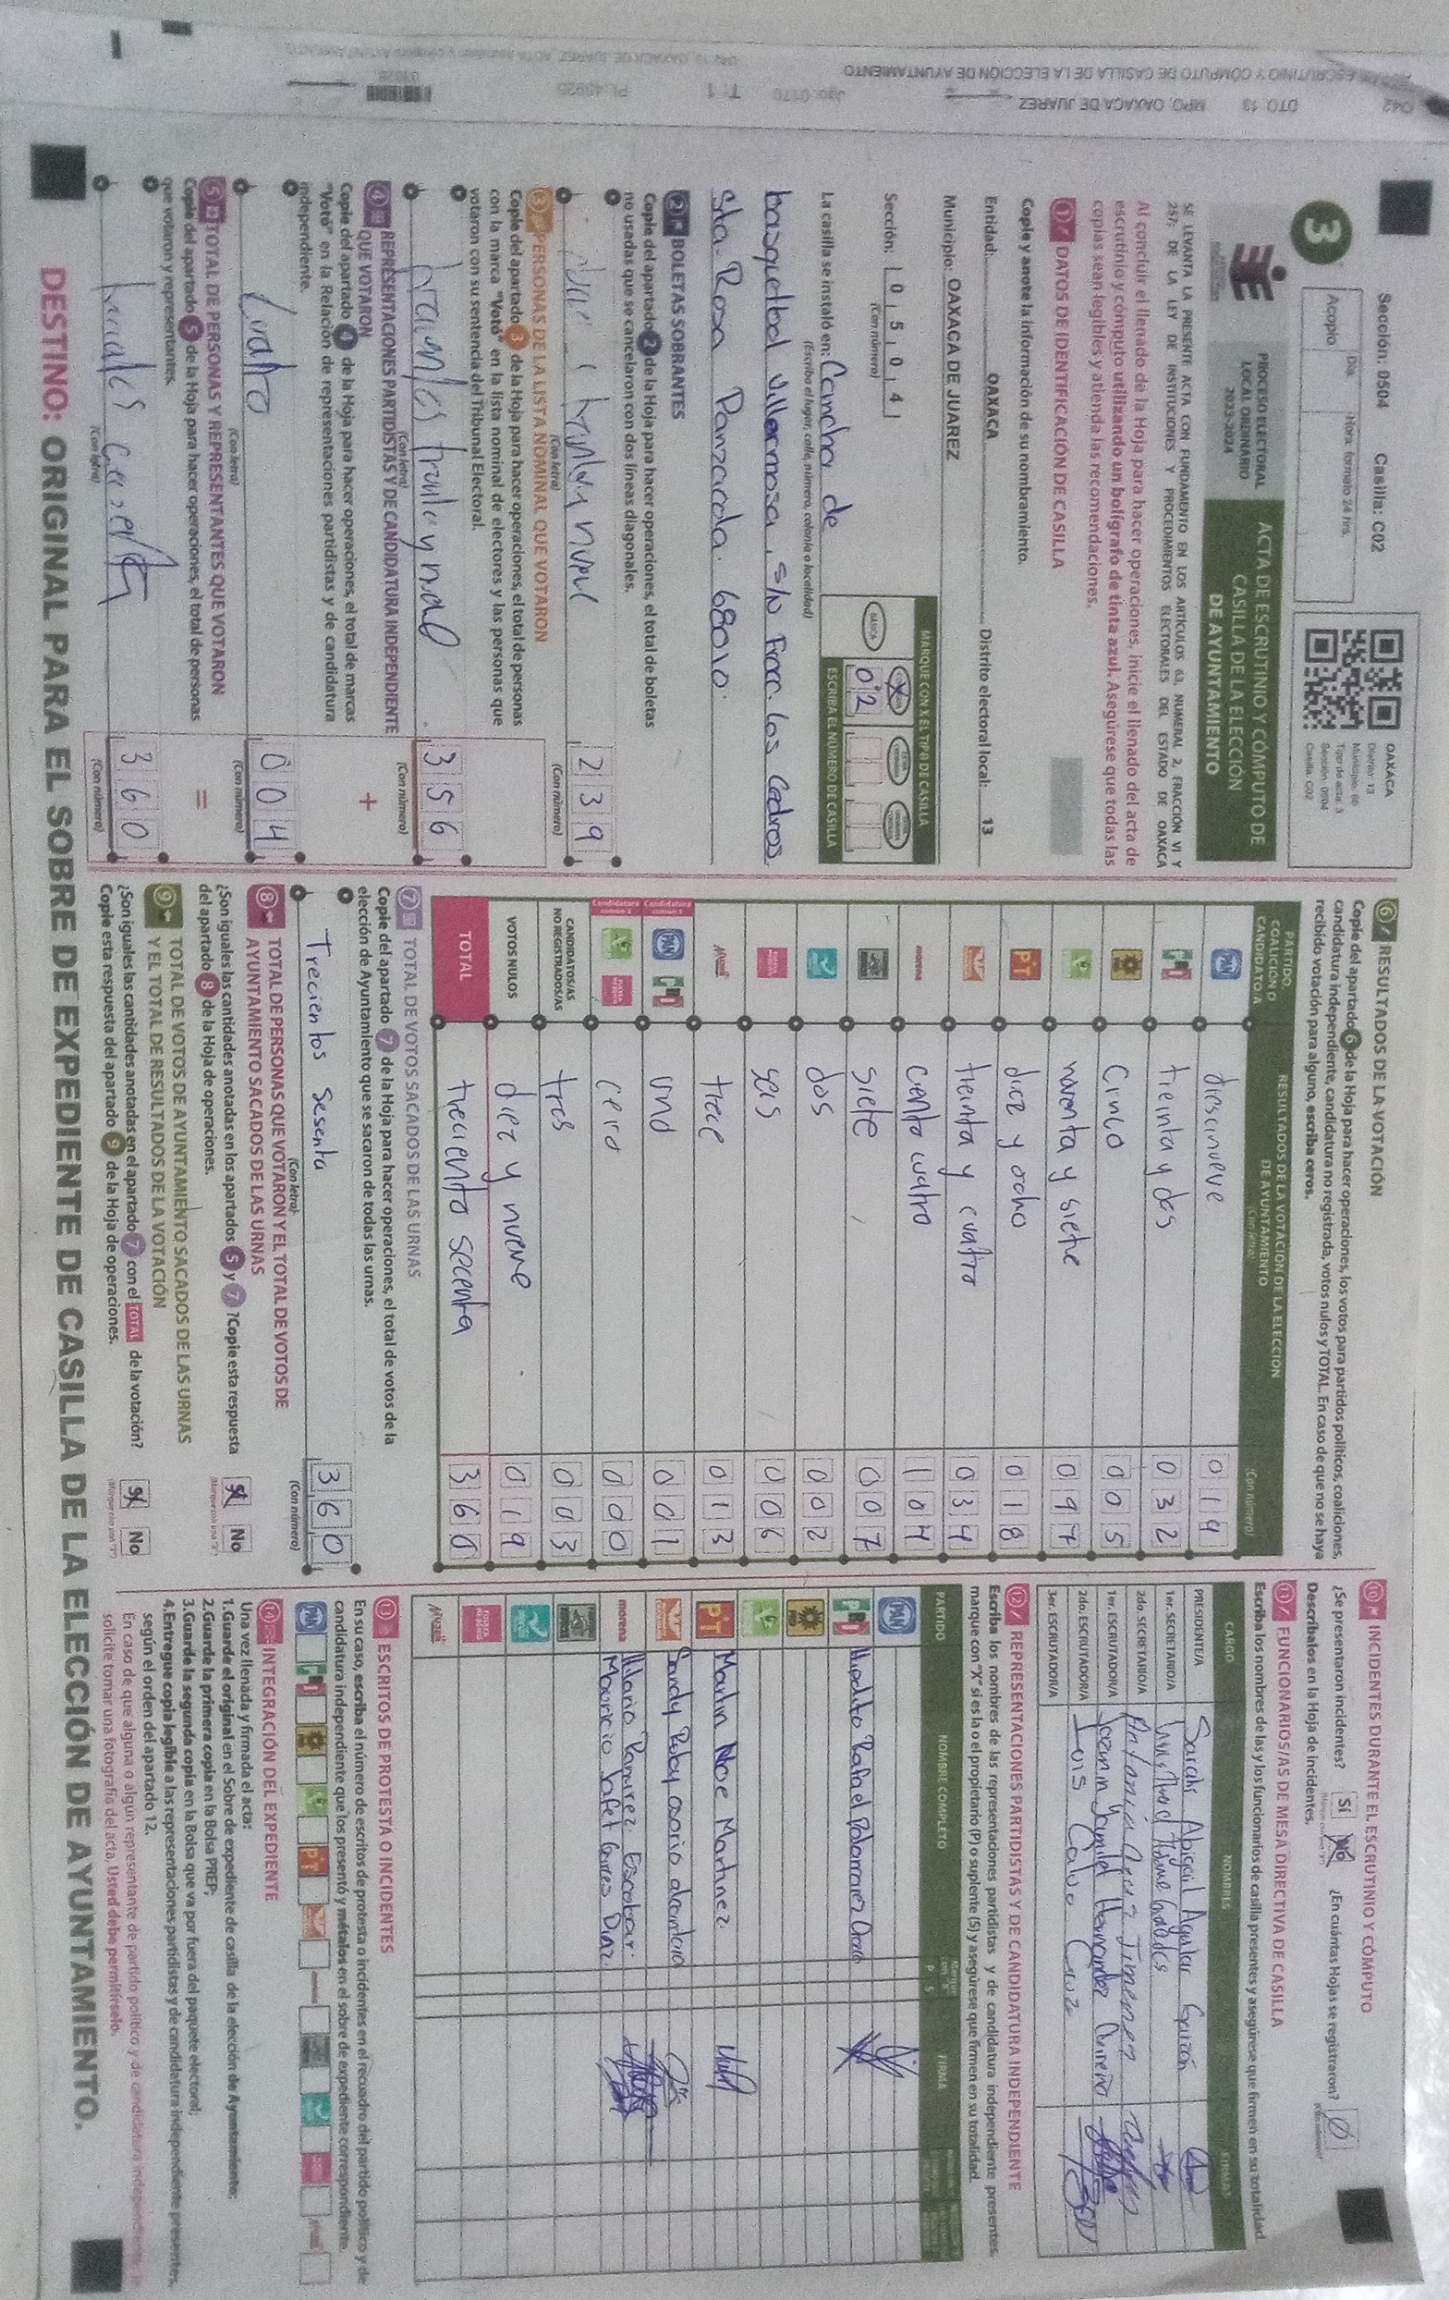 Sección: 0504 Casilla: C02
Día Hora: formato 24 hrs.
Acopio
OAXACA
Distrito: 13
Tipo de acta: 3
Sección: 0504
Casilla: C02
3
PROCESO ELECTORAL
LOCAL ORDINARIO
2023-2024
ACTA DE ESCRUTINIO Y CÓMPUTO DE
CASILLA DE LA ELECCIÓN
DE AYUNTAMIENTO
SE LEVANTA LA PRESENTE ACTA CON FUNDAMENTO EN LOS ARTÍCULOS 63, NUMERAL 2, FRACCIÓN VI Y
257; DE LA LEY DE INSTITUCIONES Y PROCEDIMIENTOS ELECTORALES DEL ESTADO DE OAXACA
Al concluir el llenado de la Hoja para hacer operaciones, inicie el llenado del acta de
escrutinio y cómputo utilizando un bolígrafo de tinta azul. Asegúrese que todas las
copias sean legibles y atienda las recomendaciones.
1 DATOS DE IDENTIFICACIÓN DE CASILLA
Copie y anote la información de su nombramiento.
Entidad: OAXACA Distrito electoral local: 13
Municipio: OAXACA DE JUAREZ
Sección: 0 5 0 4
(Con número)
MARQUE CON X EL TIPO DE CASILLA
BÁSICA
02
ESCRIBA EL NÚMERO DE CASILLA
La casilla se instaló en: Cancha de
(Escriba el lugar, calle, número, colonia o localidad)
basquetbol Villermosa, S/N Fracc. los Cedros
Sta. Rosa Panzacola. 68010.
2 BOLETAS SOBRANTES
Copie del apartado 2 de la Hoja para hacer operaciones, el total de boletas
no usadas que se cancelaron con dos líneas diagonales.
treinta y nueve 2 3 9
(Con letra) (Con número)
3 PERSONAS DE LA LISTA NOMINAL QUE VOTARON
Copie del apartado 3 de la Hoja para hacer operaciones, el total de personas
con la marca "Votó" en la lista nominal de electores y las personas que
votaron con su sentencia del Tribunal Electoral.
3 5 6
(Con letra) (Con número)
4 REPRESENTACIONES PARTIDISTAS Y DE CANDIDATURA INDEPENDIENTE
QUE VOTARON
+
Copie del apartado 4 de la Hoja para hacer operaciones, el total de marcas
"Votó" en la Relación de representaciones partidistas y de candidatura
independiente.
Cuatro 0 0 4
(Con letra) (Con número)
5 TOTAL DE PERSONAS Y REPRESENTANTES QUE VOTARON
=
Copie del apartado 5 de la Hoja para hacer operaciones, el total de personas
que votaron y representantes.
3 6 0
(Con letra) (Con número)
6 RESULTADOS DE LA VOTACIÓN
Copie del apartado 6 de la Hoja para hacer operaciones, los votos para partidos políticos, coaliciones,
candidatura independiente, candidatura no registrada, votos nulos y TOTAL. En caso de que no se haya
recibido votación para alguno, escriba ceros.
PARTIDO,
COALICIÓN O
CANDIDATO/A
RESULTADOS DE LA VOTACIÓN DE LA ELECCIÓN
DE AYUNTAMIENTO
(Con letra) (Con número)
PAN diescinueve 0 1 9
PRI treinta y dos 0 3 2
Cinco 0 0 5
noventa y siete 0 9 7
PT diez y ocho 0 1 8
treinta y cuatro 0 3 4
morena ciento cuatro 1 0 4
siete 0 0 7
dos 0 0 2
seis 0 0 6
trece 0 1 3
PAN PRI uno 0 0 1
cero 0 0 0
CANDIDATOS/AS
NO REGISTRADOS/AS tres 0 0 3
VOTOS NULOS diez y nueve 0 1 9
TOTAL treciento secenta 3 6 0
7 TOTAL DE VOTOS SACADOS DE LAS URNAS
Copie del apartado 7 de la Hoja para hacer operaciones, el total de votos de la
elección de Ayuntamiento que se sacaron de todas las urnas.
Trecientos sesenta 3 6 0
(Con letra) (Con número)
8 TOTAL DE PERSONAS QUE VOTARON Y EL TOTAL DE VOTOS DE
AYUNTAMIENTO SACADOS DE LAS URNAS
¿Son iguales las cantidades anotadas en los apartados 5 y 7 ? Copie esta respuesta
del apartado 8 de la Hoja de operaciones.
Sí No
9 TOTAL DE VOTOS DE AYUNTAMIENTO SACADOS DE LAS URNAS
Y EL TOTAL DE RESULTADOS DE LA VOTACIÓN
¿Son iguales las cantidades anotadas en el apartado 7 con el TOTAL de la votación?
Copie esta respuesta del apartado 9 de la Hoja de operaciones.
Sí No
10 INCIDENTES DURANTE EL ESCRUTINIO Y CÓMPUTO
¿Se presentaron incidentes? Sí No ¿En cuántas Hojas se registraron? 0
Descríbalos en la Hoja de incidentes.
11 FUNCIONARIOS/AS DE MESA DIRECTIVA DE CASILLA
Escriba los nombres de las y los funcionarios de casilla presentes y asegúrese que firmen en su totalidad.
CARGO NOMBRES FIRMAS
PRESIDENTE/A Sarahi Abigail Aguilar
1er. SECRETARIO/A
2do. SECRETARIO/A Antonia Jimenez
1er. ESCRUTADOR/A Yamilet Hernandez
2do. ESCRUTADOR/A Luis Calvo Cruz
3er. ESCRUTADOR/A
12 REPRESENTACIONES PARTIDISTAS Y DE CANDIDATURA INDEPENDIENTE
Escriba los nombres de las representaciones partidistas y de candidatura independiente presentes,
marque con "X" si es la o el propietario (P) o suplente (S) y asegúrese que firmen en su totalidad.
PARTIDO NOMBRE COMPLETO P S FIRMA
PAN
PRI Rafael
PT Martin Noe Martinez
Sandy Ruby osorio
morena Hilario Ramirez Escobar.
Mauricio Jafet Diaz.
13 ESCRITOS DE PROTESTA O INCIDENTES
En su caso, escriba el número de escritos de protesta o incidentes en el recuadro del partido político y de
candidatura independiente que los presentó y métalos en el sobre de expediente correspondiente.
PAN PRI PT
14 INTEGRACIÓN DEL EXPEDIENTE
Una vez llenada y firmada el acta:
1.Guarde el original en el Sobre de expediente de casilla de la elección de Ayuntamiento;
2.Guarde la primera copia en la Bolsa PREP;
3.Guarde la segunda copia en la Bolsa que va por fuera del paquete electoral;
4.Entregue copia legible a las representaciones partidistas y de candidatura independiente presentes,
según el orden del apartado 12.
En caso de que alguna o algún representante de partido político y de candidatura independiente
solicite tomar una fotografía del acta. Usted debe permitírselo.
DESTINO: ORIGINAL PARA EL SOBRE DE EXPEDIENTE DE CASILLA DE LA ELECCIÓN DE AYUNTAMIENTO.
DTO 13 MPO. OAXACA DE JUAREZ
ESCRUTINIO Y CÓMPUTO DE CASILLA DE LA ELECCIÓN DE AYUNTAMIENTO